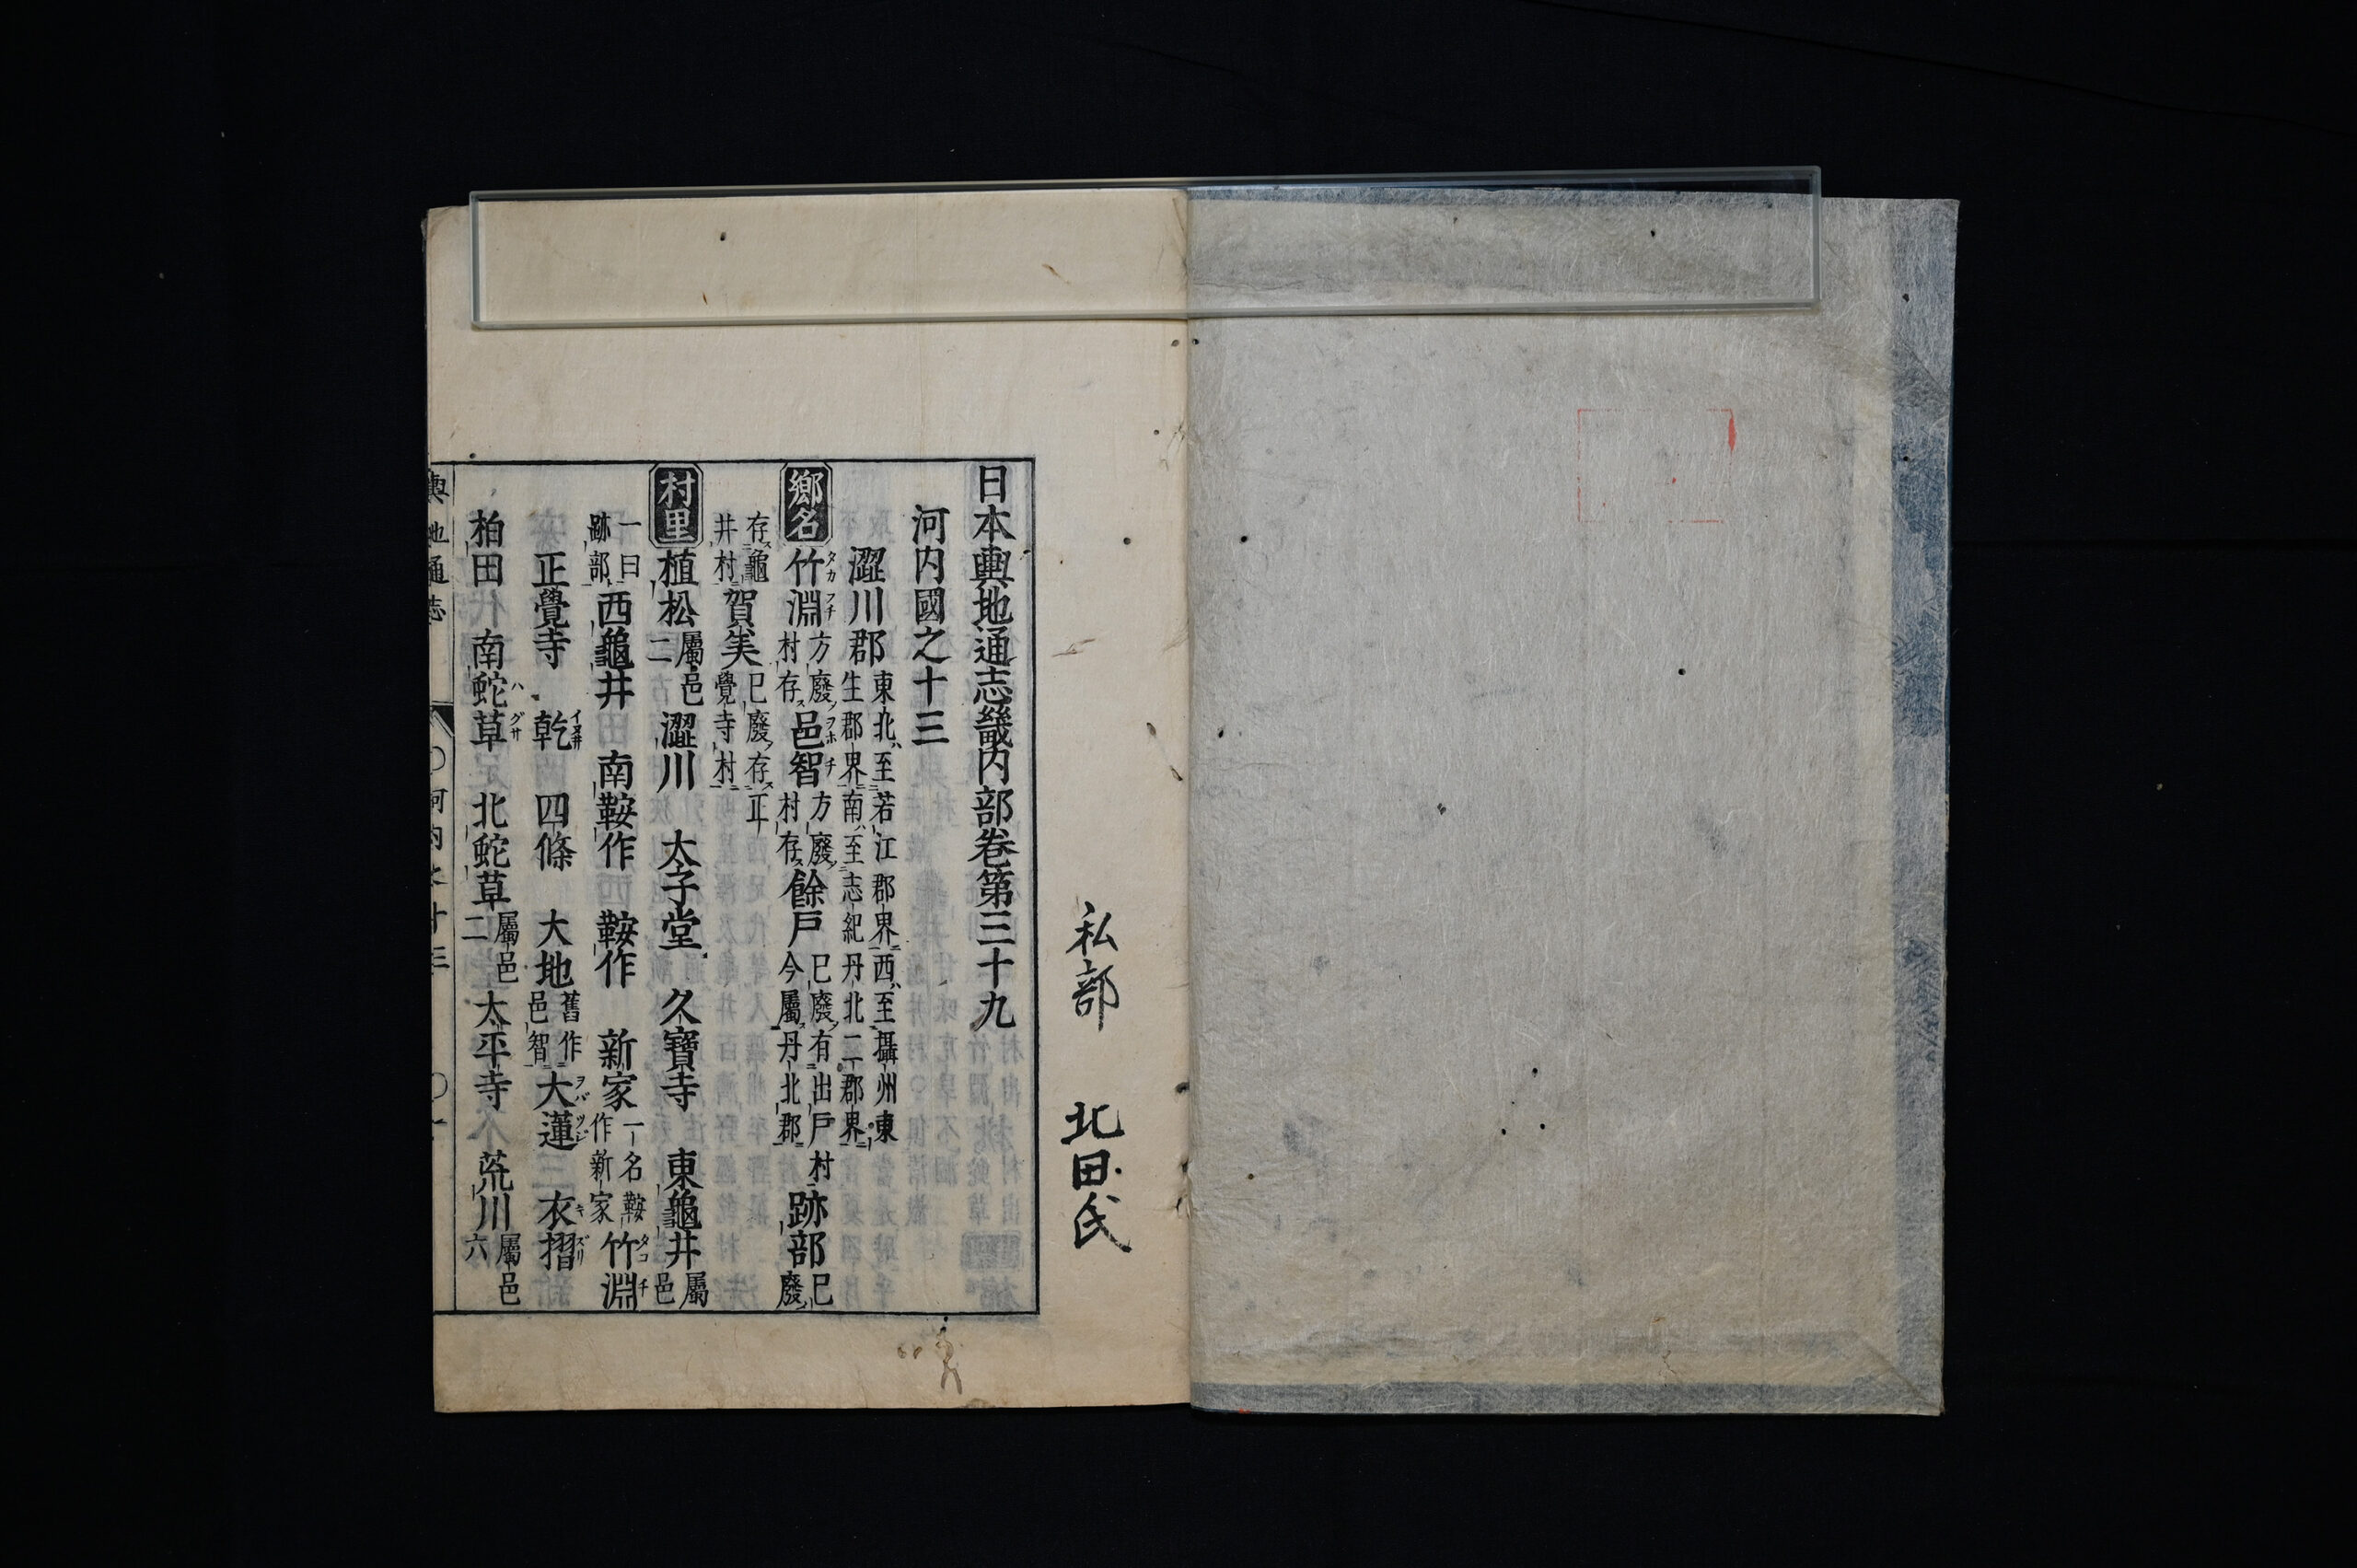 私部 北田氏
日本輿地通志畿內部卷第三十九
河內國之十三
澀川郡 東北至若江郡界西至攝州東生郡界南至志紀丹北二郡界
鄉名 竹淵 方廢村存 邑智 方廢村存 餘戶 已廢有出戶村今屬丹北郡 跡部 已廢
存龜井村 賀美 已廢存正覺寺村
村里 植松 屬邑二 澀川 太子堂 久寶寺 東龜井 屬邑
一曰跡部 西龜井 南鞍作 鞍作 新家 一名鞍作新家 竹淵
正覺寺 乾 四條 大地 舊作邑智 大蓮 衣摺
柏田 南蛇草 北蛇草 屬邑二 太平寺 荒川 屬邑六
輿地通志 河內之十三